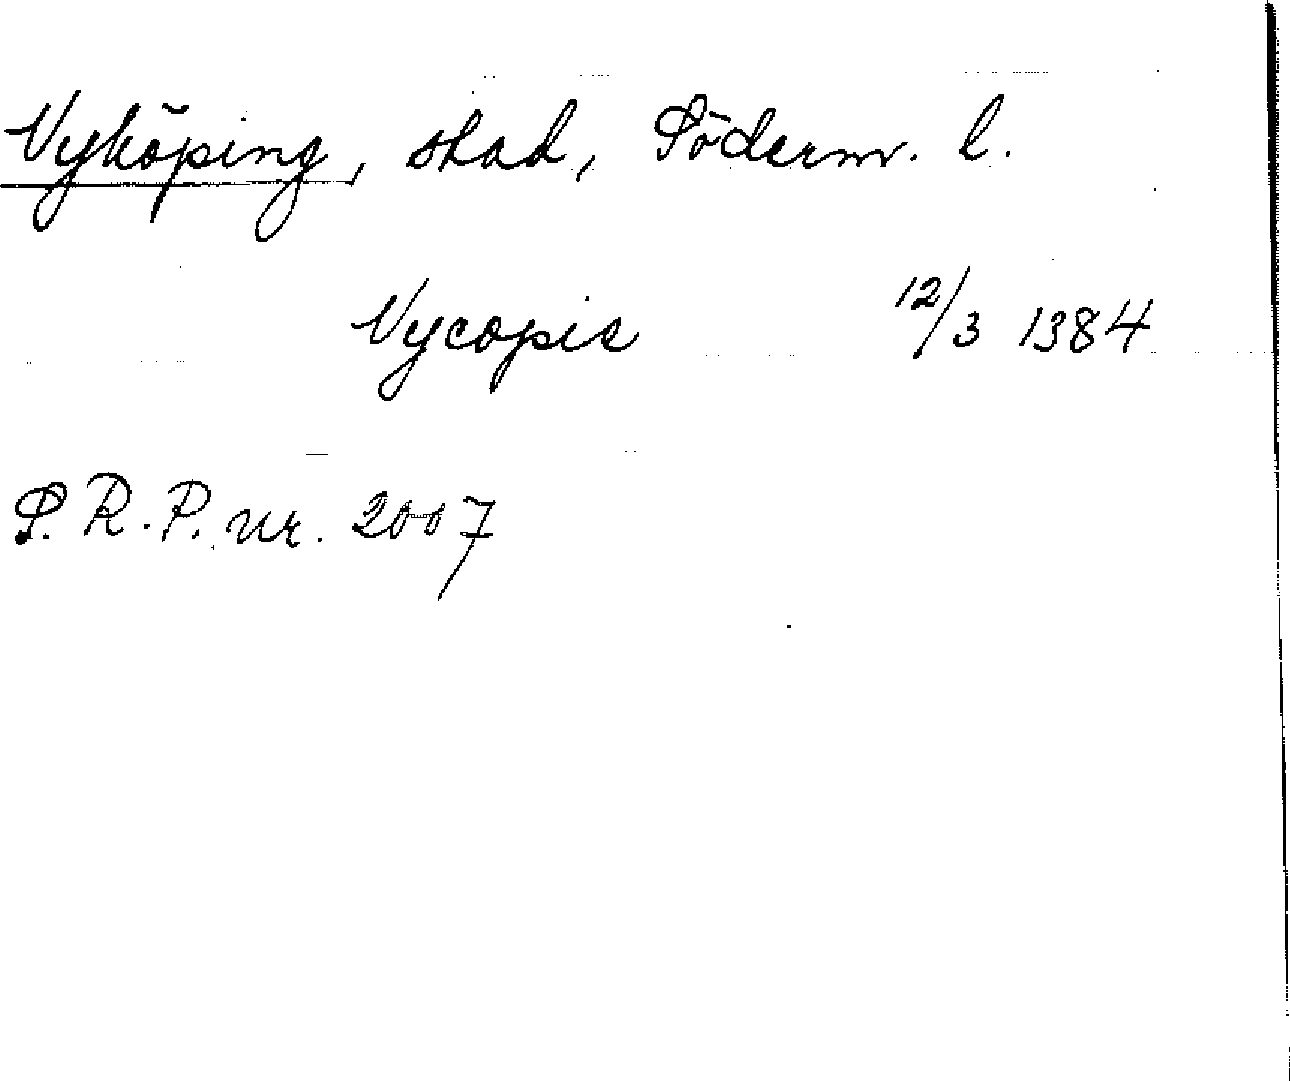 Nyköping, stad, Söderm. l.
Nycopie 12/3 1384
S. R. P. nr. 2007